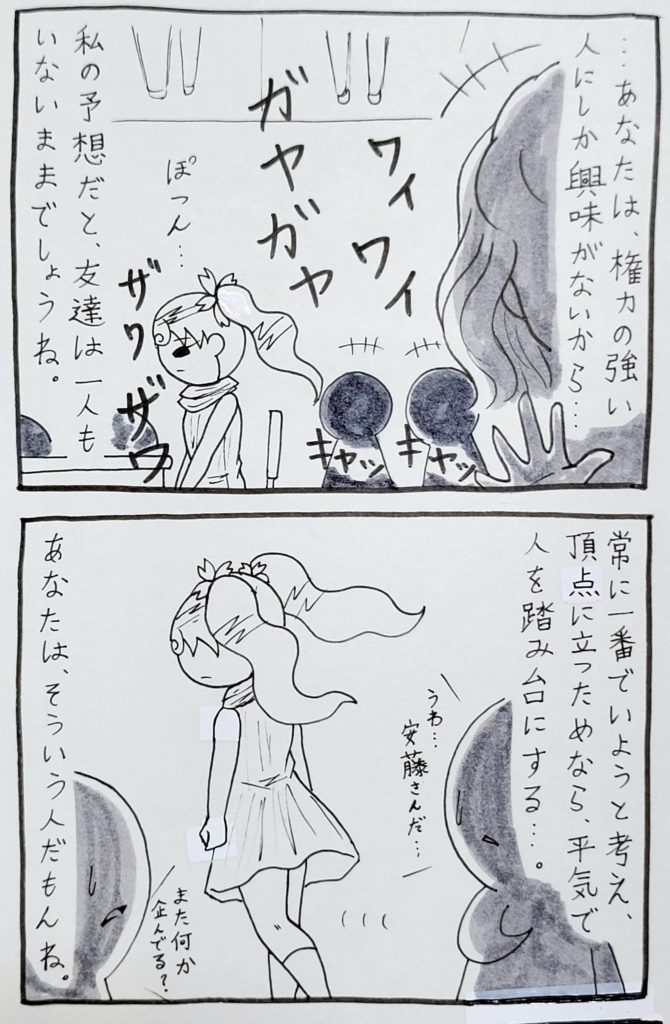 …あなたは、権力の強い
人にしか興味がないから…
ワイワイ
ガヤガヤ
キャッ
キャッ
ぽつん…
ザワザワ
私の予想だと、友達は一人も
いないままでしょうね。
常に一番でいようと考え、
頂点に立つためなら、平気で
人を踏み台にする…。
うわ…
安藤さんだ…
また何か
企んでる？
あなたは、そういう人だもんね。